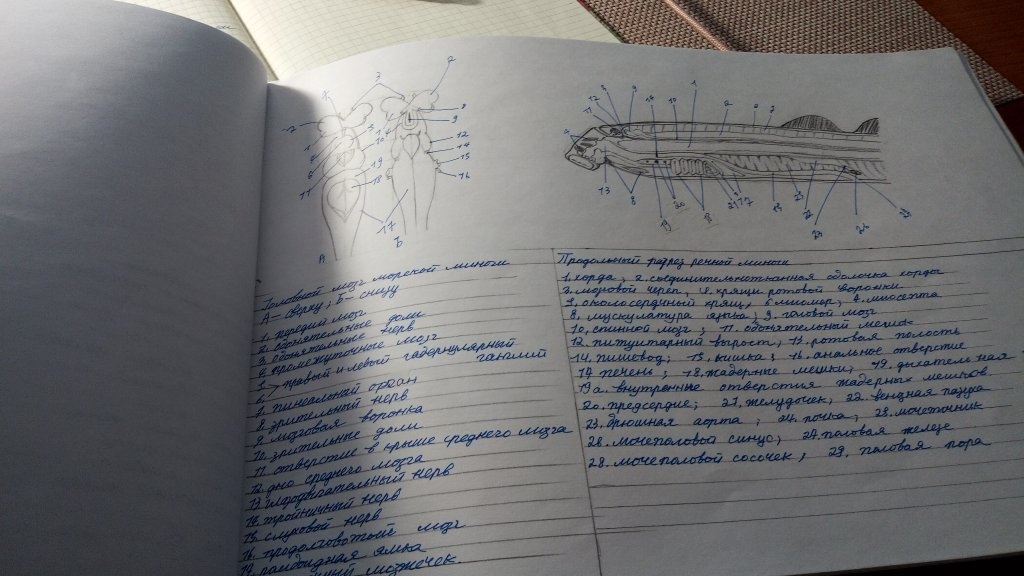 Головной мозг морской миноги
А - сверху; Б - снизу
1. передний мозг
2. обонятельные доли
3. обонятельные нерв
4. промежуточные мозг
5. > правый и левый габенулярный
6. ганглий
7. пинеальный орган
8. зрительный нерв
9. мозговая воронка
10. зрительные доли
11. отверстие в крыше среднего мозга
12. дно среднего мозга
13. глазодвигательный нерв
14. тройничный нерв
15. слуховой нерв
16. продолговатый мозг
17. ромбовидная ямка
мозжечек
Продольный разрез речной миноги
1. хорда; 2. соединительнотканная оболочка хорды
3. мозговой череп; 4. хрящи ротовой воронки
5. околосердечный хрящ; 6. миомер; 7. миосепта
8. мускулатура языка; 9. головой мозг
10. спинной мозг; 11. обонятельный мешок
12. питуитарный вырост; 13. ротовая полость
14. пищевод; 15. кишка; 16. анальное отверстие
17. печень; 18. жаберные мешки; 19. дыхательная
19а. внутренние отверстия жаберных мешков
20. предсердие; 21. желудочек; 22. венозная пазуха
23. брюшная аорта; 24. почка; 25. мочеточник
26. мочеполовой синус; 27. половая железа
28. мочеполовой сосочек; 29. половая пора